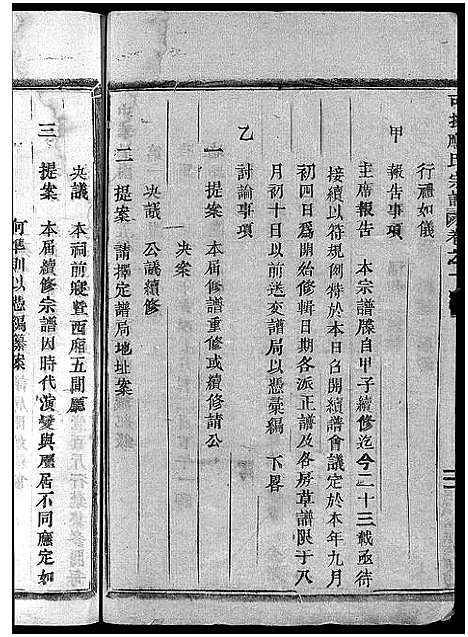 行禮如儀
甲 報告事項
主席報告 本宗譜滕自甲子續修迄今二十三載亟待
接續以符規例特於本日召開續譜會議定於本年九月
初四日爲開始修輯日期各派正譜及各房草譜限于八
月初十日以前送交譜局以憑彙編 下畧
乙 討論事項
一 提案 本届修譜重修或續修請公
決案
決議 公議續修
二 提案 請擇定譜局地址案
決議 本祠前寢暨西廂五間廳
三 提案 本届續修宗譜因時代演變與屢居不同應定如
何準則以憑編纂案